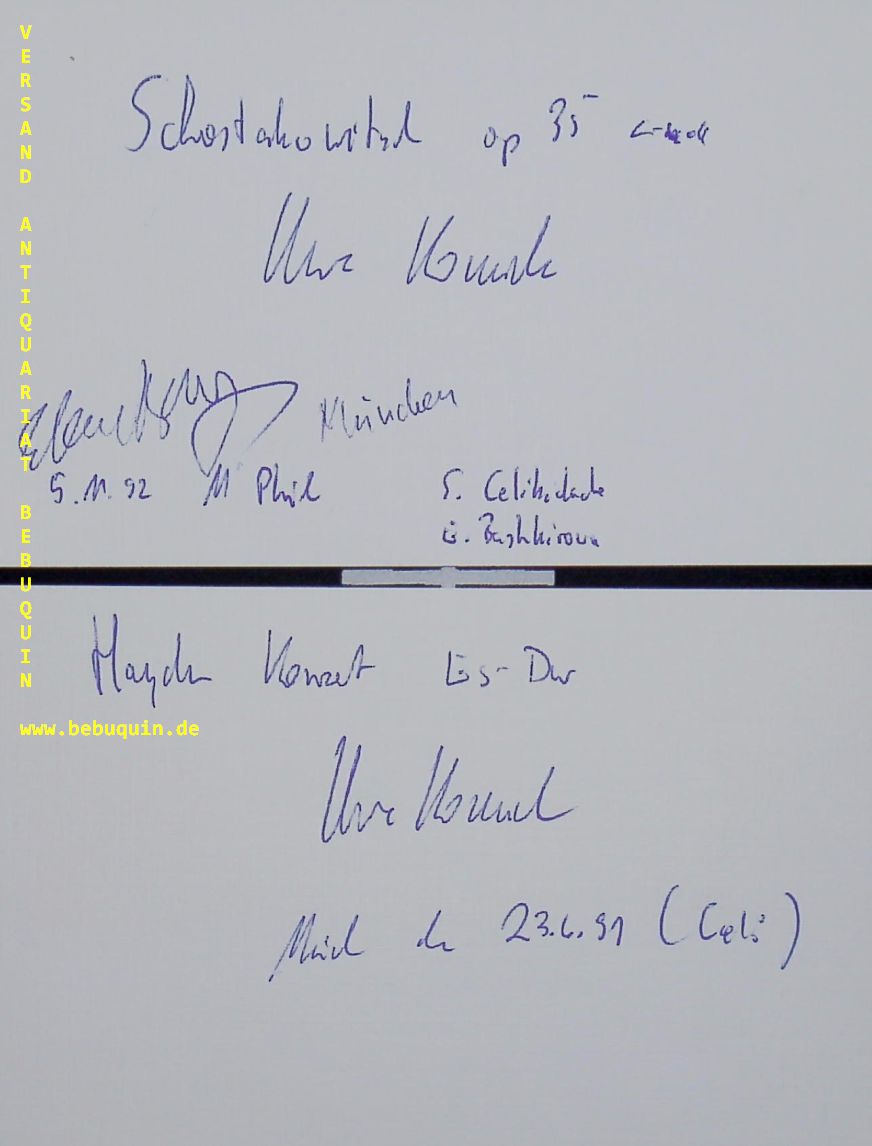 VERSAND ANTIQUARIAT BEBUQUIN
www.bebuquin.de
Schostakowitsch op 35 c-moll
Uwe Komisch
München
5.11.92 M Phil S. Celibidache
E. Bashkirova
Haydn Konzert Es-Dur
Uwe
23.6.91 (Celi)